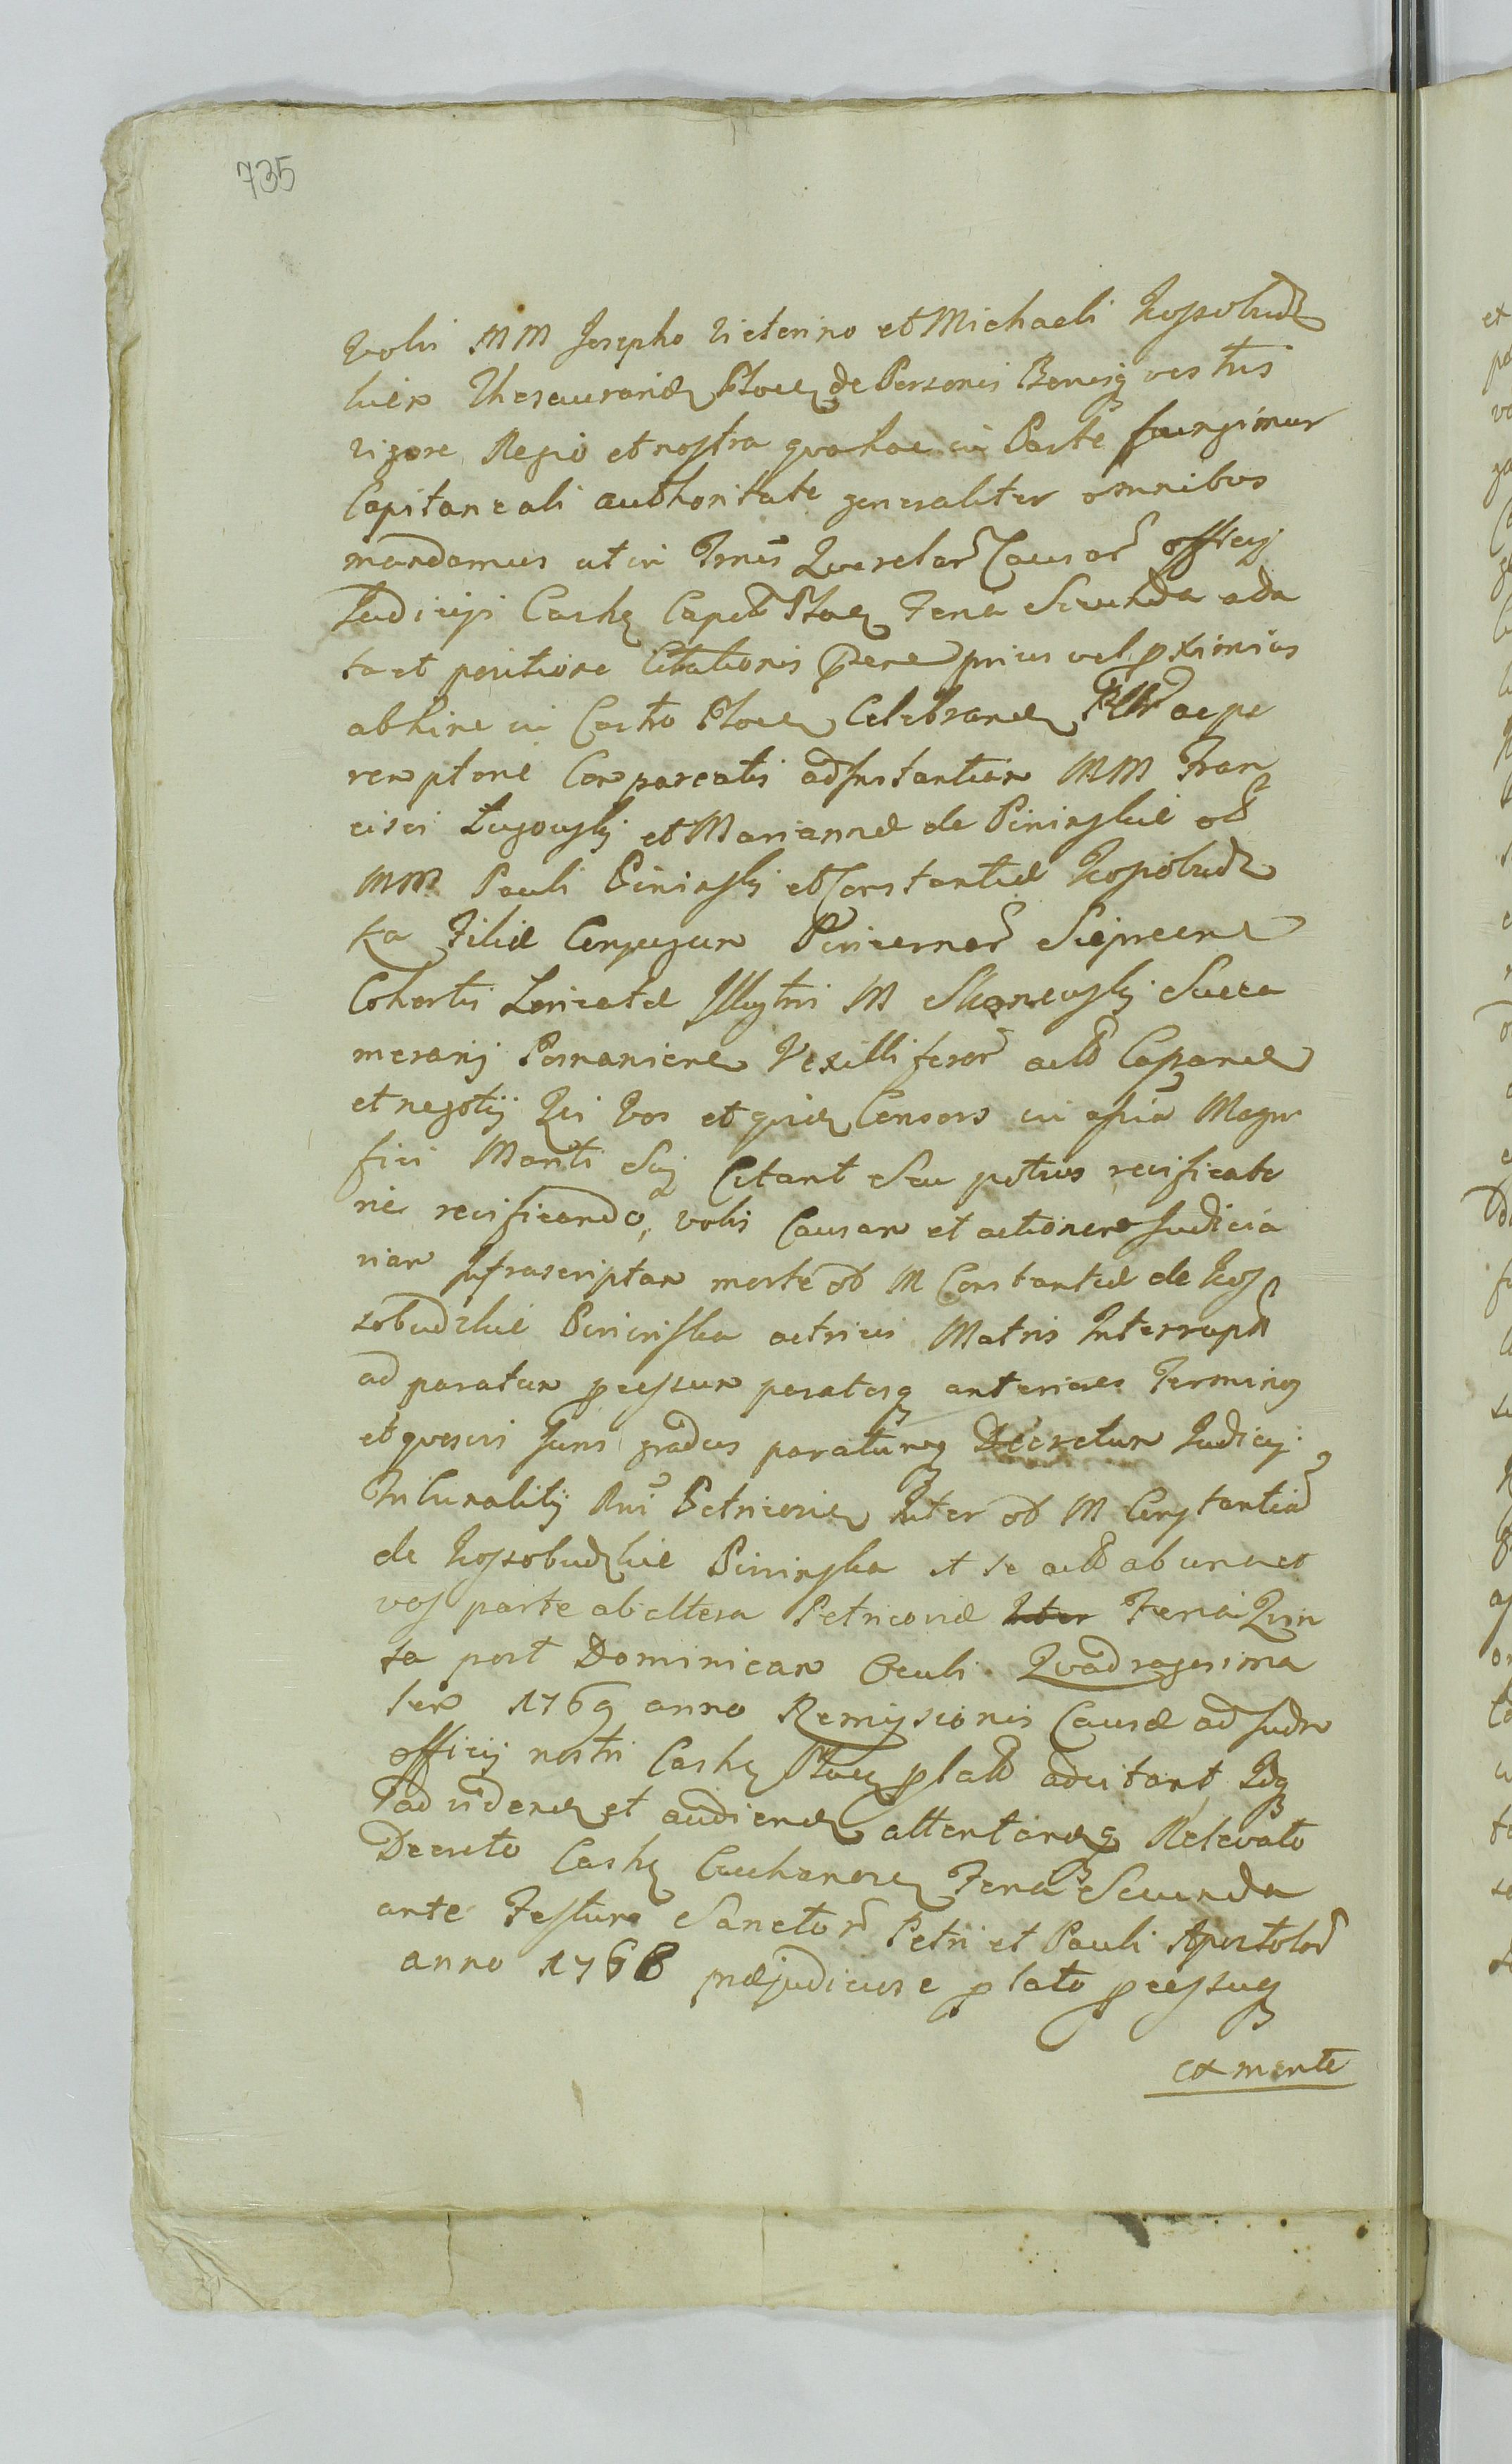 735
Vobis MM Josepho Victorino et Michaeli Kossobudz
kiem Thesaurarid Plocen de Personis Bonisq vestris
vigore Regio et nostra qva hac in Parte fungimur
Capitaneali authoritate generaliter omnibus
mandamus ut in Trnis Qverelar Causar officij
Judicij Castren Capit Plocen Feria Secunda a da
ta et positione Citationis prius vel pximius
abhinc in Castro Plocen Celebrand ac pe
remptorie Compareatis ad Instantiam MM Fran
cisci Lugowskj et Marianna de Pininskie od
MM Pauli Pininskj et Constantia Kossobudz
ka Filia Conjugum Pincernar Sieprcens
Cohortis Loricata Illustris M Skorzewskj Succa
merarij Posnaniens Vexillifesor act Capaned
et negotij Qui Vos et qvid Censors in assia Magni
fici Mariti Sui Citant Seu potius reisficato
rie reisficando, vobis Causam et actionem Judicia
riam Infrascriptam morte od M Constantia de Kos
sobudzkie Pininska actricis Matris Interrupt
ad paratum pcessum paratosq anteriores Terminos
et qvesiti Juris gradus paratumq Decretum Judicij
Tribunalitij Rni Petricovien Inter od M Constantia
de Kossobudzkie Pininska et se act ab una et
vos parte ab altera Petricovia Feria Quin
ta post Dominicam Oculi Quadragesima
lem 1769 anno Remissionis Causa ad Judm
officij nostri Castren Plocen plati adcitant, Idq
ad vidend et audiend attentandq Relevato
Decreto Castren Ciechanovien Feria Secunda
ante Festum Sanctor Petri et Pauli Apostolor
anno 1768 prajudiciose plato pcessuq
ex mente